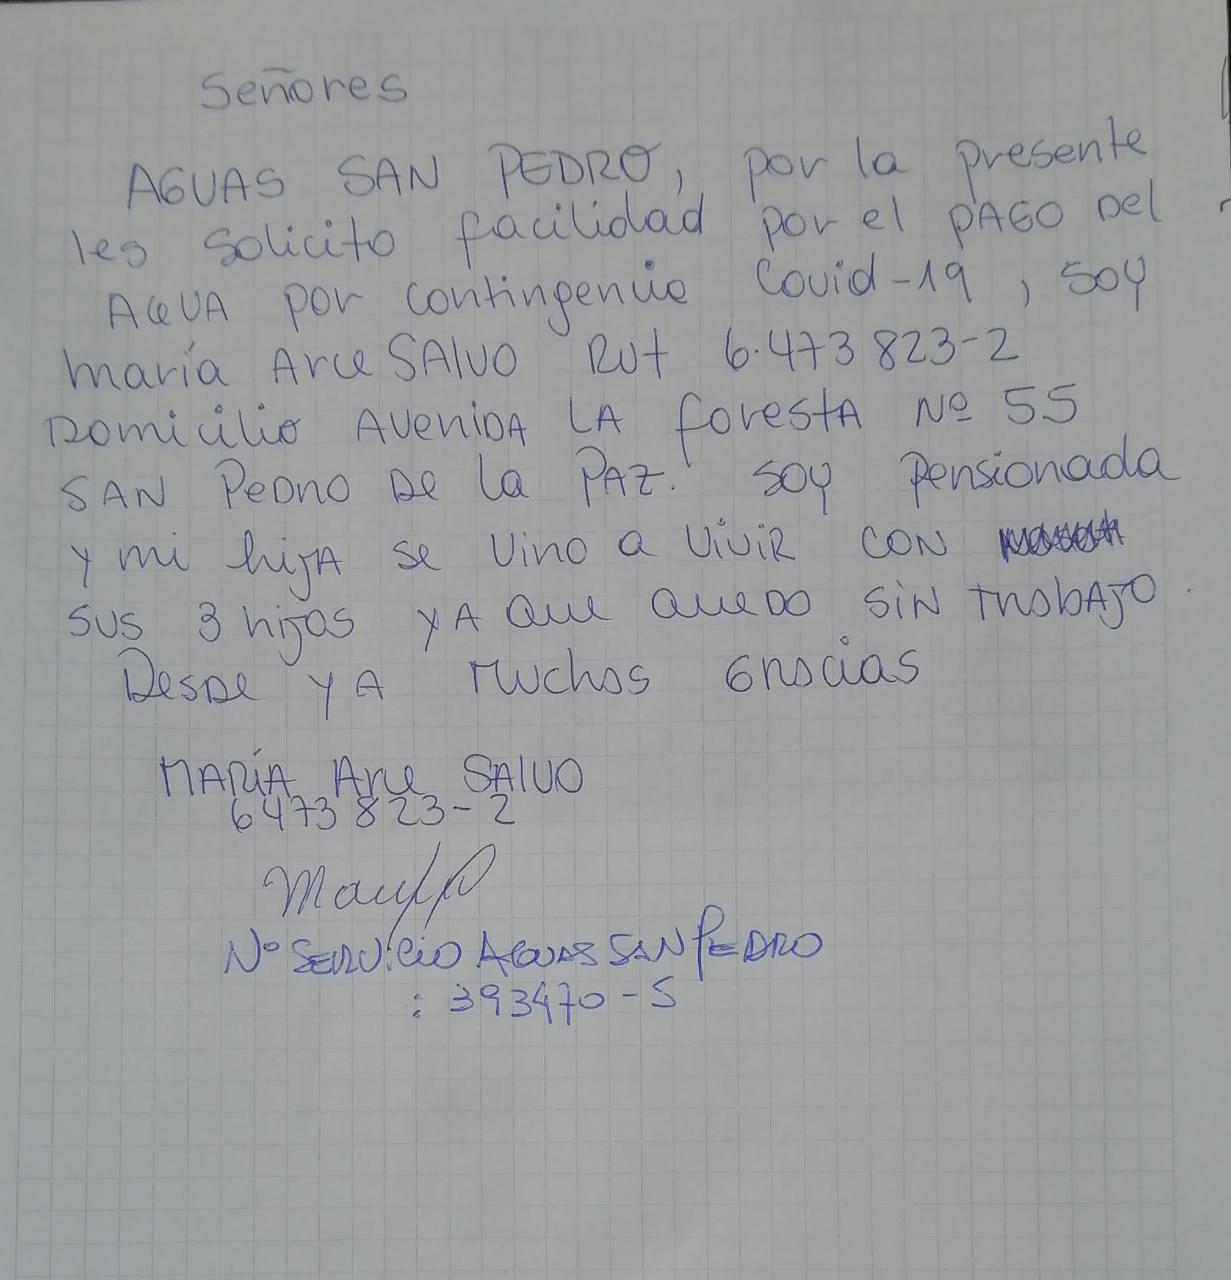 Señores
AGUAS SAN PEDRO, por la presente
les solicito facilidad por el PAGO Del
AGUA por contingencia Covid-19, soy
maría Arce SAlvO Rut 6.473 823-2
Domicilio AvenIDA LA forestA Nº 55
SAN Pedro De la PAZ. soy Pensionada
y mi hijA se vino a viviR CON
sus 3 hijos yA que queDO SiN trabAJO
Desde yA Muchas Gracias
MARÍA Arce SAlVO
6473 823-2
Nº SERViCiO AGUAS SAN PEDRO
: 393470-5